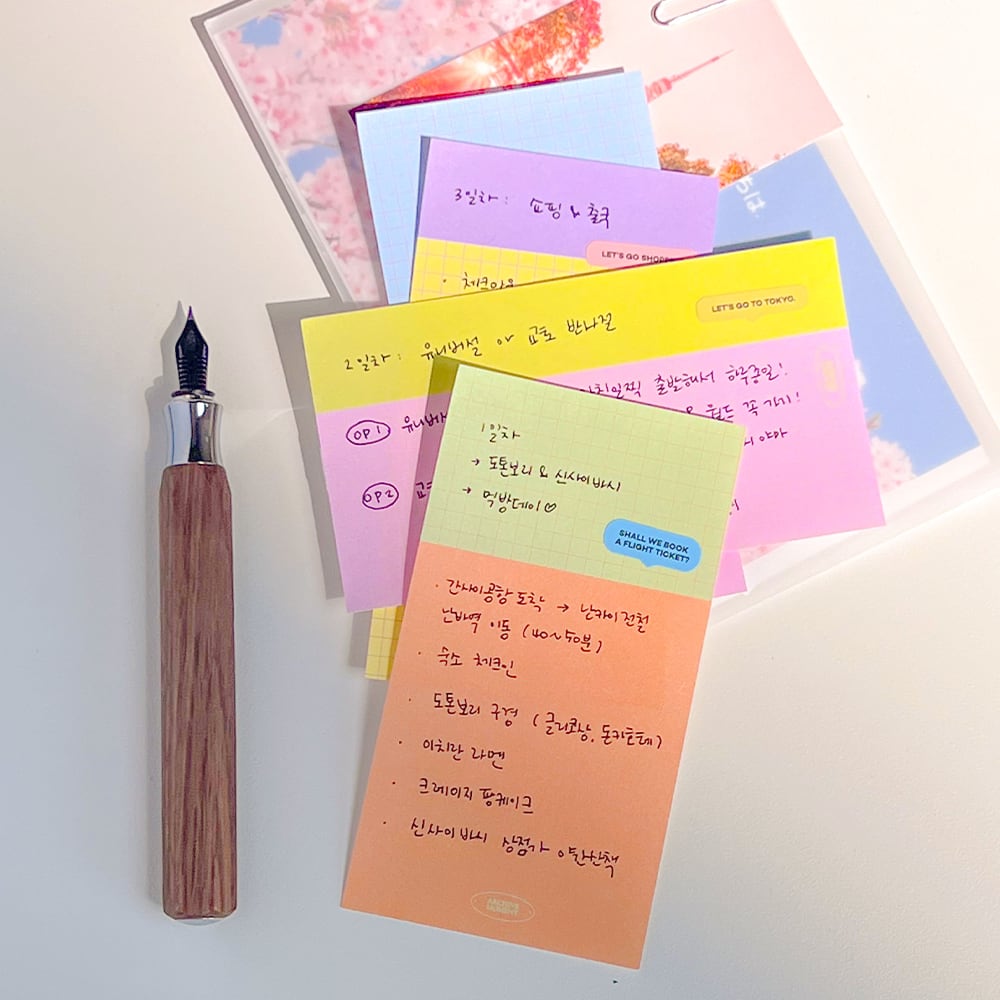 ちは.
3일차: 쇼핑 & 출국
LET'S GO SHOPP
· 체크아웃
LET'S GO TO TOKYO.
2일차: 유니버설 or 교토 반나절
OP1 유니버 아침일찍 출발해서 하루종일!
월드 꼭 가기!
야마
OP2 교
1일차
→ 도톤보리 & 신사이바시
→ 먹방데이♡
SHALL WE BOOK
A FLIGHT TICKET?
· 간사이공항 도착 → 난카이전철
난바역 이동 (40~50분)
· 숙소 체크인
· 도톤보리 구경 (글리코상, 돈키호테)
· 이치란 라멘
· 크레이지 팬케이크
· 신사이바시 상점가 야간산책